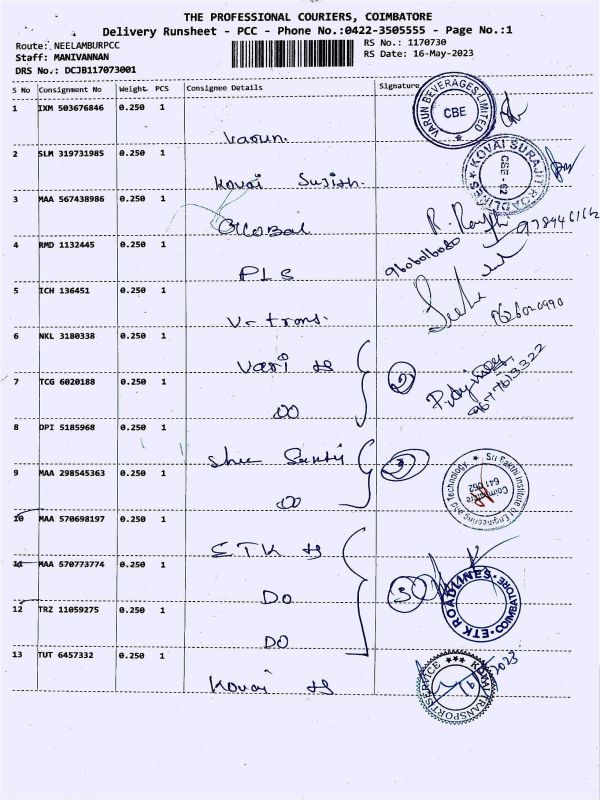 THE PROFESSIONAL COURIERS, COIMBATORE
Delivery Runsheet - PCC - Phone No.:0422-3505555 - Page No.:1
Route: NEELAMBURPCC
RS No.: 1170730
Staff: MANIVANNAN
RS Date: 16-May-2023
DRS No.: DCJB117073001
S No Consignment No Weight PCS Consignee Details Signature
1 IXM 503676846 0.250 1
Varun.
VARUN BEVERAGES LIMITED
CBE
2 SLM 319731985 0.250 1
Kovai
KOVAI SURAJIT ROADLINES
CBE - 62
3 MAA 567438986 0.250 1
Global
4 RMD 1132445 0.250 1
PLS
5 ICH 136451 0.250 1
V-trans.
6 NKL 3180338 0.250 1
7 TCG 6020188 0.250 1
DO
2
9677613322
8 DPI 5185968 0.250 1
9 MAA 298545363 0.250 1
DO
Sri Sakthi Institute of Engineering and Technology
Coimbatore
641 062
10 MAA 570698197 0.250 1
ETK
11 MAA 570773774 0.250 1
DO
3
ETK ROADLINES
COIMBATORE
12 TRZ 11059275 0.250 1
DO
13 TUT 6457332 0.250 1
Kovai
KOVAI TRANSPORT SERVICE